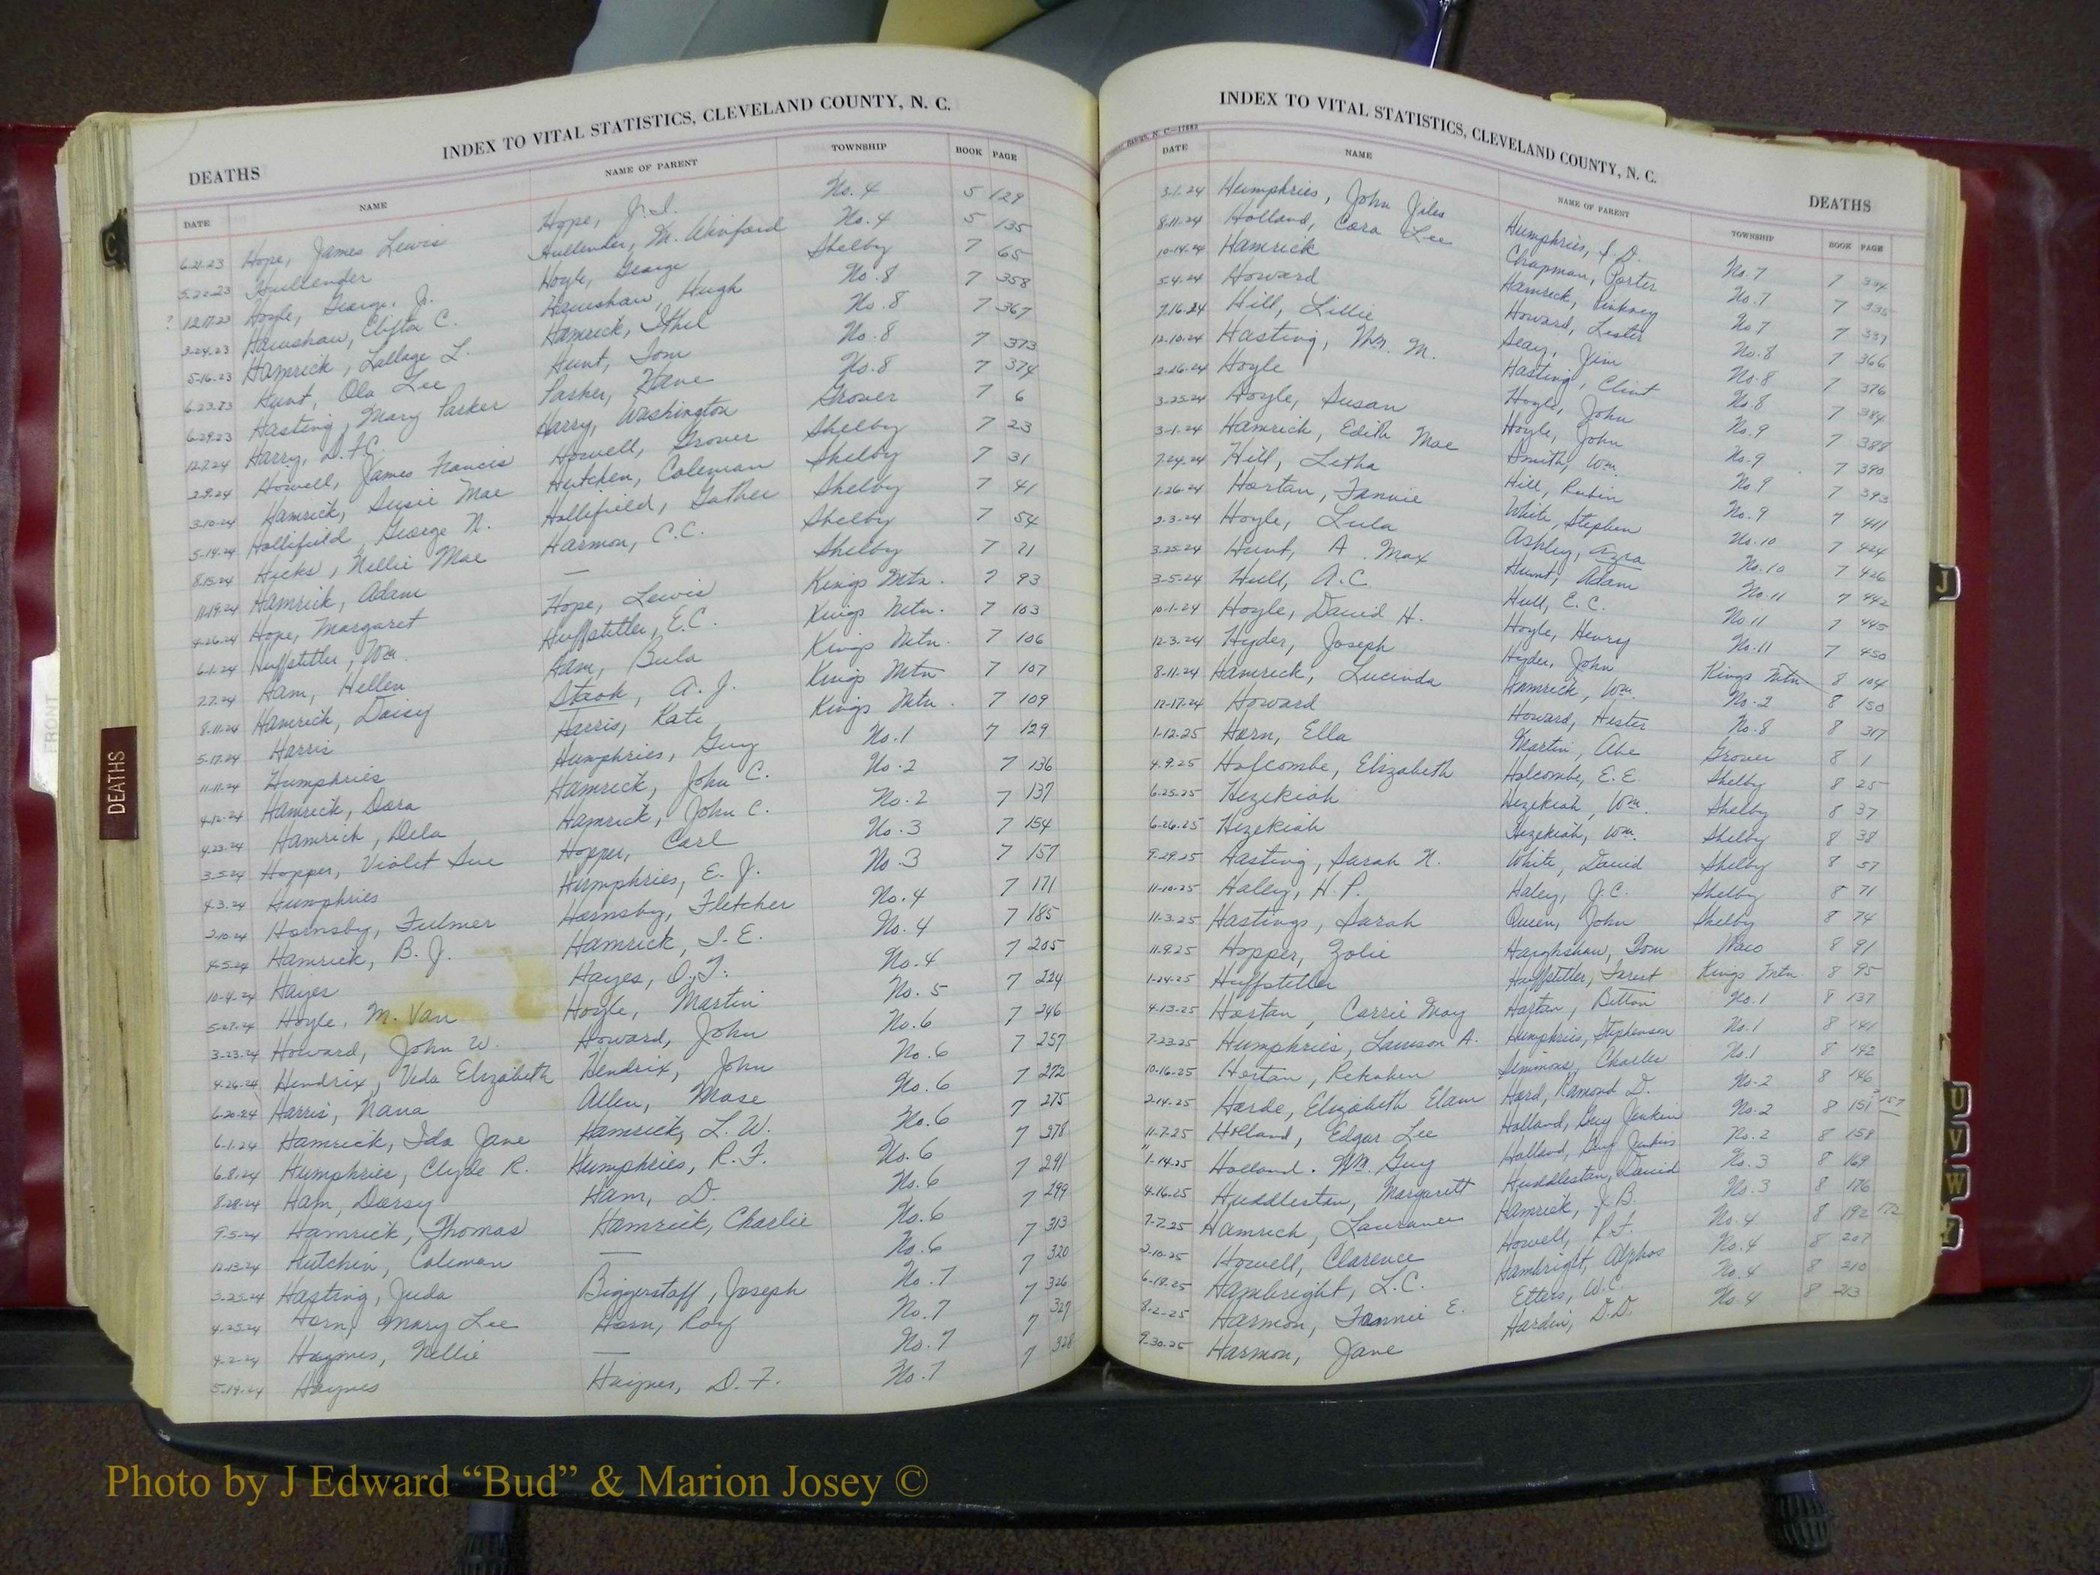 INDEX TO VITAL STATISTICS, CLEVELAND COUNTY, N. C.
DEATHS
DATE NAME NAME OF PARENT TOWNSHIP BOOK PAGE
6-21-23 Hope, James Lewis Hope, J.I. No. 4 5 129
5-22-23 Hullender Hullender, M. Winford No. 4 5 135
? 12-17-23 Hoyle, George, Jr. Hoyle, George Shelby 7 65
3-24-23 Hawshaw, Clifton C. Hawshaw, Hugh No. 8 7 358
5-16-23 Hamrick, Lallage L. Hamrick, Ithel No. 8 7 367
6-23-23 Hunt, Ola Lee Hunt, Tom No. 8 7 373
6-29-23 Hasting, Mary Parker Parker, Kane No. 8 7 374
12-7-24 Harry, D.F.C. Harry, Washington Grover 7 6
2-9-24 Howell, James Francis Howell, Grover Shelby 7 23
3-10-24 Hamrick, Susie Mae Hutchen, Coleman Shelby 7 31
5-19-24 Hollifield, George N. Hollifield, Gather Shelby 7 41
8-15-24 Hicks, Nellie Mae Harmon, C.C. Shelby 7 54
11-19-24 Hamrick, Adam — Shelby 7 71
4-26-24 Hope, Margaret Hope, Lewis Kings Mtn. 7 93
6-1-24 Huffstetler, Wm. Huffstetler, E.C. Kings Mtn. 7 103
7-7-24 Ham, Hellen Ham, Bula Kings Mtn. 7 106
8-11-24 Hamrick, Daisy Stack, A. J. Kings Mtn 7 107
5-17-24 Harris Harris, Kate Kings Mtn. 7 109
11-11-24 Humphries Humphries, Guy No. 1 7 129
4-12-24 Hamrick, Dora Hamrick, John C. No. 2 7 136
4-23-24 Hamrick, Dela Hamrick, John C. No. 2 7 137
3-5-24 Hopper, Violet Sue Hopper, Carl No. 3 7 154
4-3-24 Humphries Humphries, E. J. No. 3 7 157
2-10-24 Hornsby, Fulmer Hornsby, Fletcher No. 4 7 171
4-5-24 Hamrick, B. J. Hamrick, I. E. No. 4 7 185
10-4-24 Hayes Hayes, O.T. No. 4 7 205
5-27-24 Hoyle, M. Van Hoyle, Martin No. 5 7 224
3-23-24 Howard, John W. Howard, John No. 6 7 246
4-26-24 Hendrix, Veda Elizabeth Hendrix, John No. 6 7 257
6-20-24 Harris, Nana Allen, Mose No. 6 7 272
6-1-24 Hamrick, Ida Jane Hamrick, L. W. No. 6 7 275
6-8-24 Humphries, Clyde R. Humphries, R. F. No. 6 7 278
8-28-24 Ham, Dorsy Ham, D. No. 6 7 291
9-5-24 Hamrick, Thomas Hamrick, Charlie No. 6 7 299
12-13-24 Hutchin, Coleman — No. 6 7 313
3-25-24 Hasting, Juda Biggerstaff, Joseph No. 7 7 320
4-25-24 Horn, Mary Lee Horn, Roy No. 7 7 326
4-2-24 Haynes, Nellie — No. 7 7 327
5-19-24 Haynes Haynes, D. F. No. 7 7 328
INDEX TO VITAL STATISTICS, CLEVELAND COUNTY, N. C.
DEATHS
DATE NAME NAME OF PARENT TOWNSHIP BOOK PAGE
3-1-24 Humphries, John Jiles Humphries, S D. No. 7 7 334
8-11-24 Holland, Cora Lee Chapman, Porter No. 7 7 335
10-14-24 Hamrick Hamrick, Pinkney No 7 7 337
5-4-24 Howard Howard, Lester No. 8 7 366
7-16-24 Hill, Lillie Seay, Jim No. 8 7 376
12-10-24 Hasting, Wm. M. Hasting, Clint No. 8 7 384
2-26-24 Hoyle Hoyle, John No. 9 7 388
3-25-24 Hoyle, Susan Hoyle, John No. 9 7 390
3-1-24 Hamrick, Edith Mae Smith, Wm. No. 9 7 393
7-24-24 Hill, Letha Hill, Rubin No. 9 7 411
1-26-24 Hortan, Fannie White, Stephen No. 10 7 424
2-3-24 Hoyle, Lula Ashley, Azra No. 10 7 426
3-25-24 Hunt, A. Max Hunt, Adam No. 11 7 442
3-5-24 Hull, A.C. Hull, E. C. No. 11 7 445
10-1-24 Hoyle, David H. Hoyle, Henry No. 11 7 450
12-3-24 Hyder, Joseph Hyder, John Kings Mtn 8 104
8-11-24 Hamrick, Lucinda Hamrick, Wm. No. 2 8 150
12-17-24 Howard Howard, Hester No. 8 8 317
1-12-25 Horn, Ella Martin, Abe Grover 8 1
4-9-25 Holcombe, Elizabeth Holcombe, E. E. Shelby 8 25
6-25-25 Hezekiah Hezekiah, Wm. Shelby 8 37
6-26-25 Hezekiah Hezekiah, Wm. Shelby 8 38
9-29-25 Hasting, Sarah N. White, David Shelby 8 57
11-10-25 Haley, H. P. Haley, J.C. Shelby 8 71
11-3-25 Hastings, Sarah Queen, John Shelby 8 74
11-9-25 Hopper, Zolie Haughshaw, Tom Waco 8 91
1-24-25 Huffstetler Huffstetler, Forest Kings Mtn 8 95
4-13-25 Hortan, Carrie May Hortan, Bitton No. 1 8 137
7-23-25 Humphries, Lawson A. Humphries, Stephenson No. 1 8 141
10-16-25 Hortan, Rekohen Simmons, Charlie No. 1 8 142
2-14-25 Horde, Elizabeth Elam Hord, Ramond D. No. 2 8 146
11-7-25 Holland, Edgar Lee Holland, Guy Jenkin No. 2 8 151 157
1-14-25 Holland. Wm. Guy Holland, Guy Jenkins No. 2 8 158
4-16-25 Huddlestan, Margarett Huddlestan, David No. 3 8 169
7-7-25 Hamrick, Laurance Hamrick, J. B. No. 3 8 176
2-10-25 Howell, Clarence Howell, R. F. No. 4 8 192 172
6-18-25 Hambright, L.C. Hambright, Alphos No. 4 8 207
8-2-25 Harmon, Fannie E. Etters, W.C. No. 4 8 210
9-30-25 Harmon, Jane Hardin, D.D. No. 4 8 213
C
FRONT
DEATHS
J
U
V
W
Photo by J Edward “Bud” & Marion Josey ©